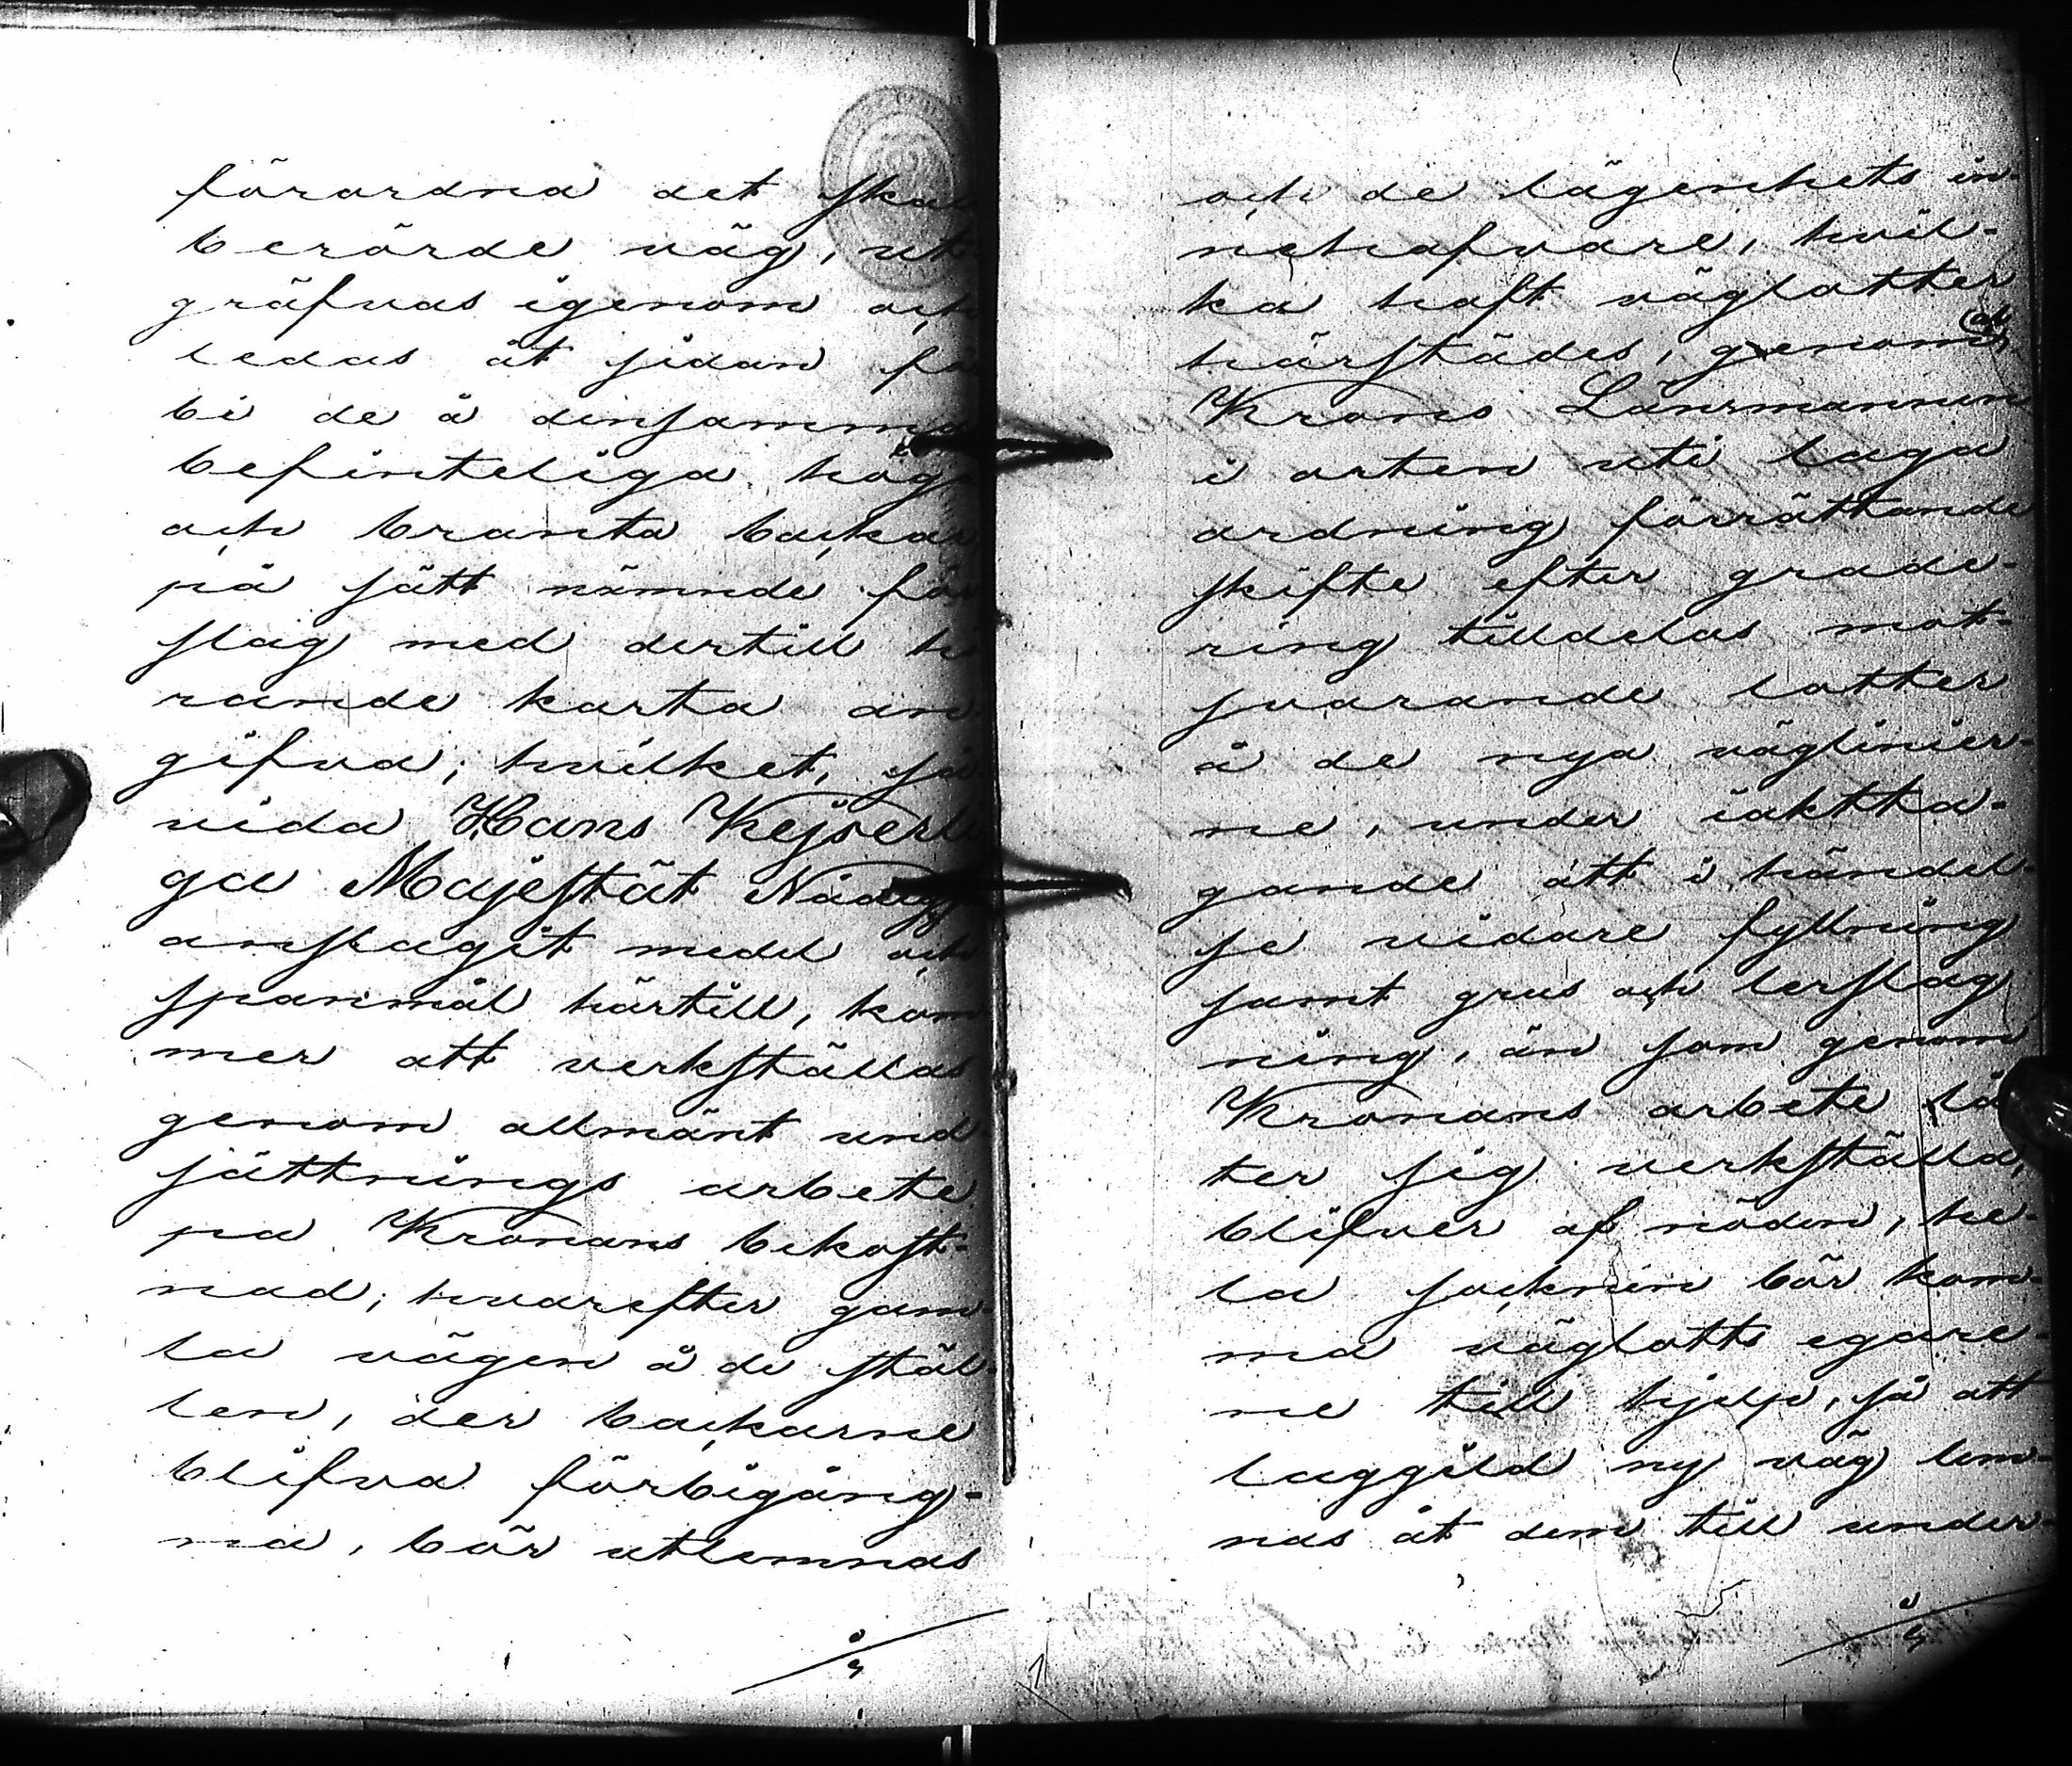 förordna det skal
berörde väg, ut-
gräfvas igenom och
ledas åt sidan för
bi de å densamma
befinteliga höga
och branta backar
på sätt nämnde för
slag med dertill hö
rande karta an-
gifva; hvilket, så-
vida Hans Kejserli
ga Majestät Nådigst
anslagit medel och
spanmål härtill, kom
mer att verkställas
genom allmänt und-
sättnings arbete
på Kronans bekost-
nad; hvarefter gam-
la vägen å de stäl-
len, der backarne
blifva förbigång-
na, bör utlemnas
och de lägenhets in-
nehafvare, hvil-
ka haft väglotter
härstädes, genom af
Krono Länsmannen
i orten uti laga
ordning förrättande
skifte efter grade-
ring tilldelas mot-
svarande lotter
å de nya väglinier-
ne, under iaktta-
gande att i händel-
se vidare fyllning
samt grus och lerslag
ning, än som genom
Kronans arbete lå
ter sig verkställa,
blifver af nöden, he-
la socknen bör kom-
ma väglotts egare-
ne till hjelp, så att
laggild ny väg lem-
nas åt dem till under-